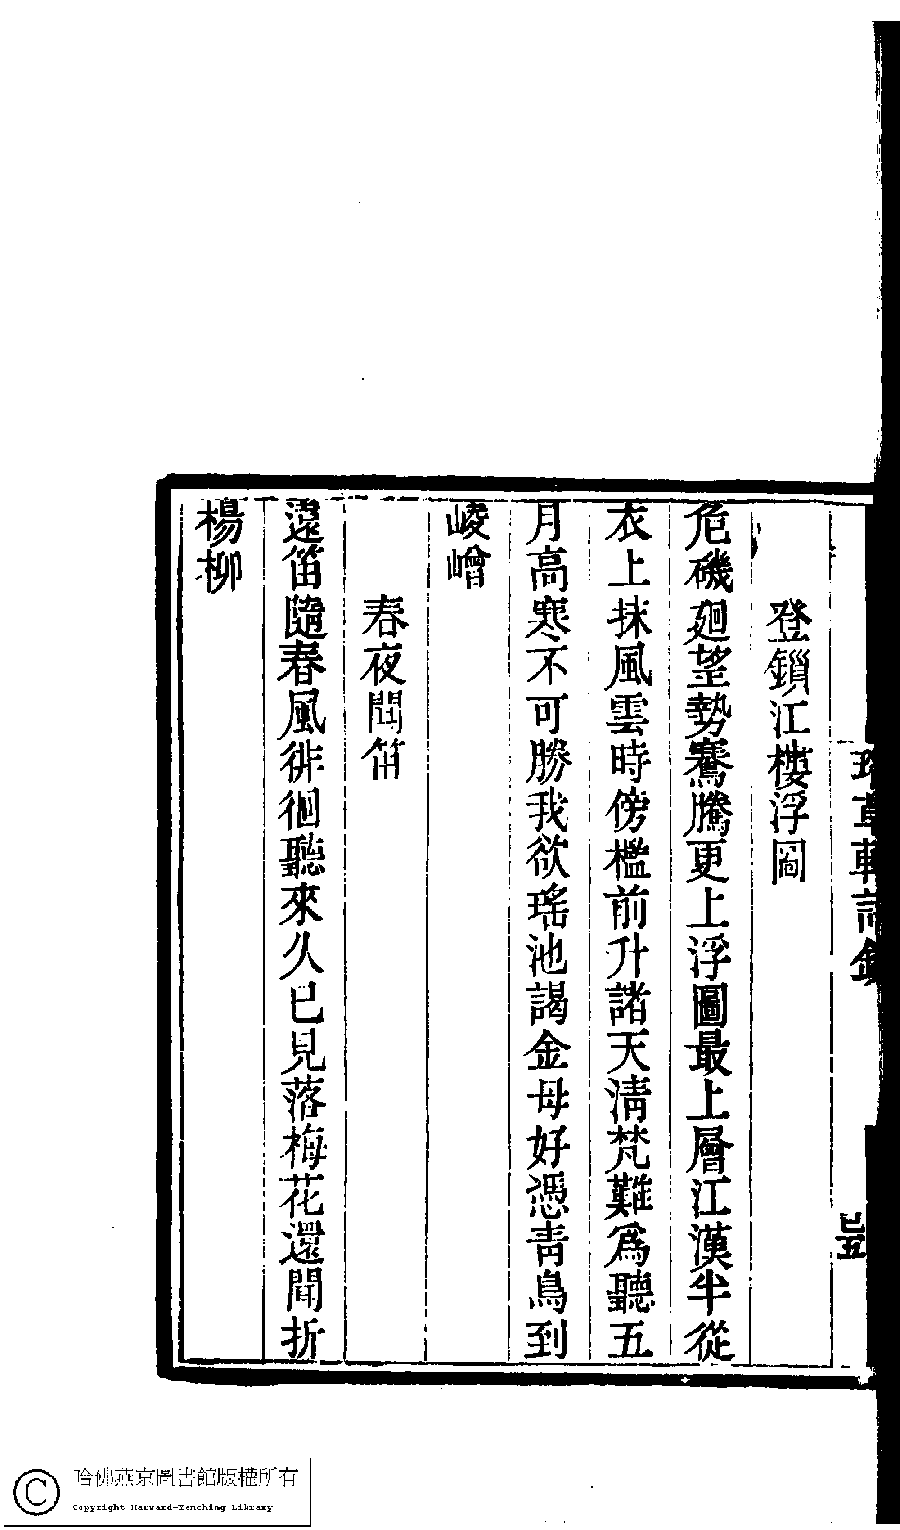 登鎖江樓浮圖
危磯廻望勢騫騰更上浮圖最上層江漢半從
衣上抹風雲時傍檻前升諸天清梵難爲聽五
月高寒不可勝我欲瑤池謁金母好憑青鳥到
崚嶒
春夜聞笛
遠笛隨春風徘徊聽來久已見落梅花還聞折
楊柳
哈佛燕京圖書館版權所有
Copyright Harvard-Yenching Library